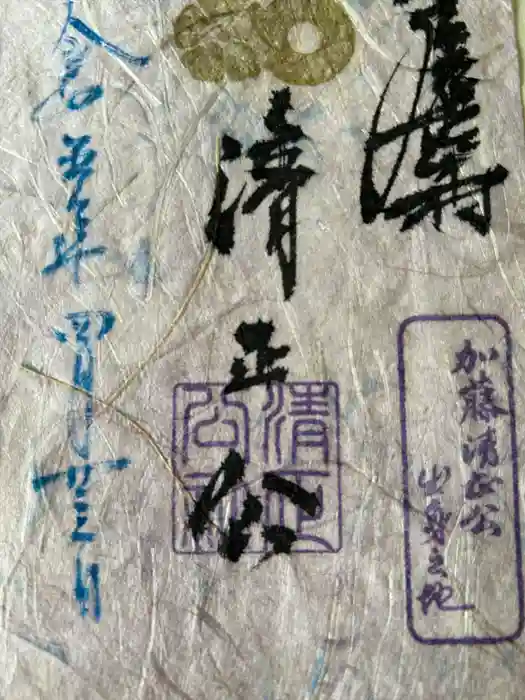 加藤清正公
出発之地
清正公
令和五年四月廿三日